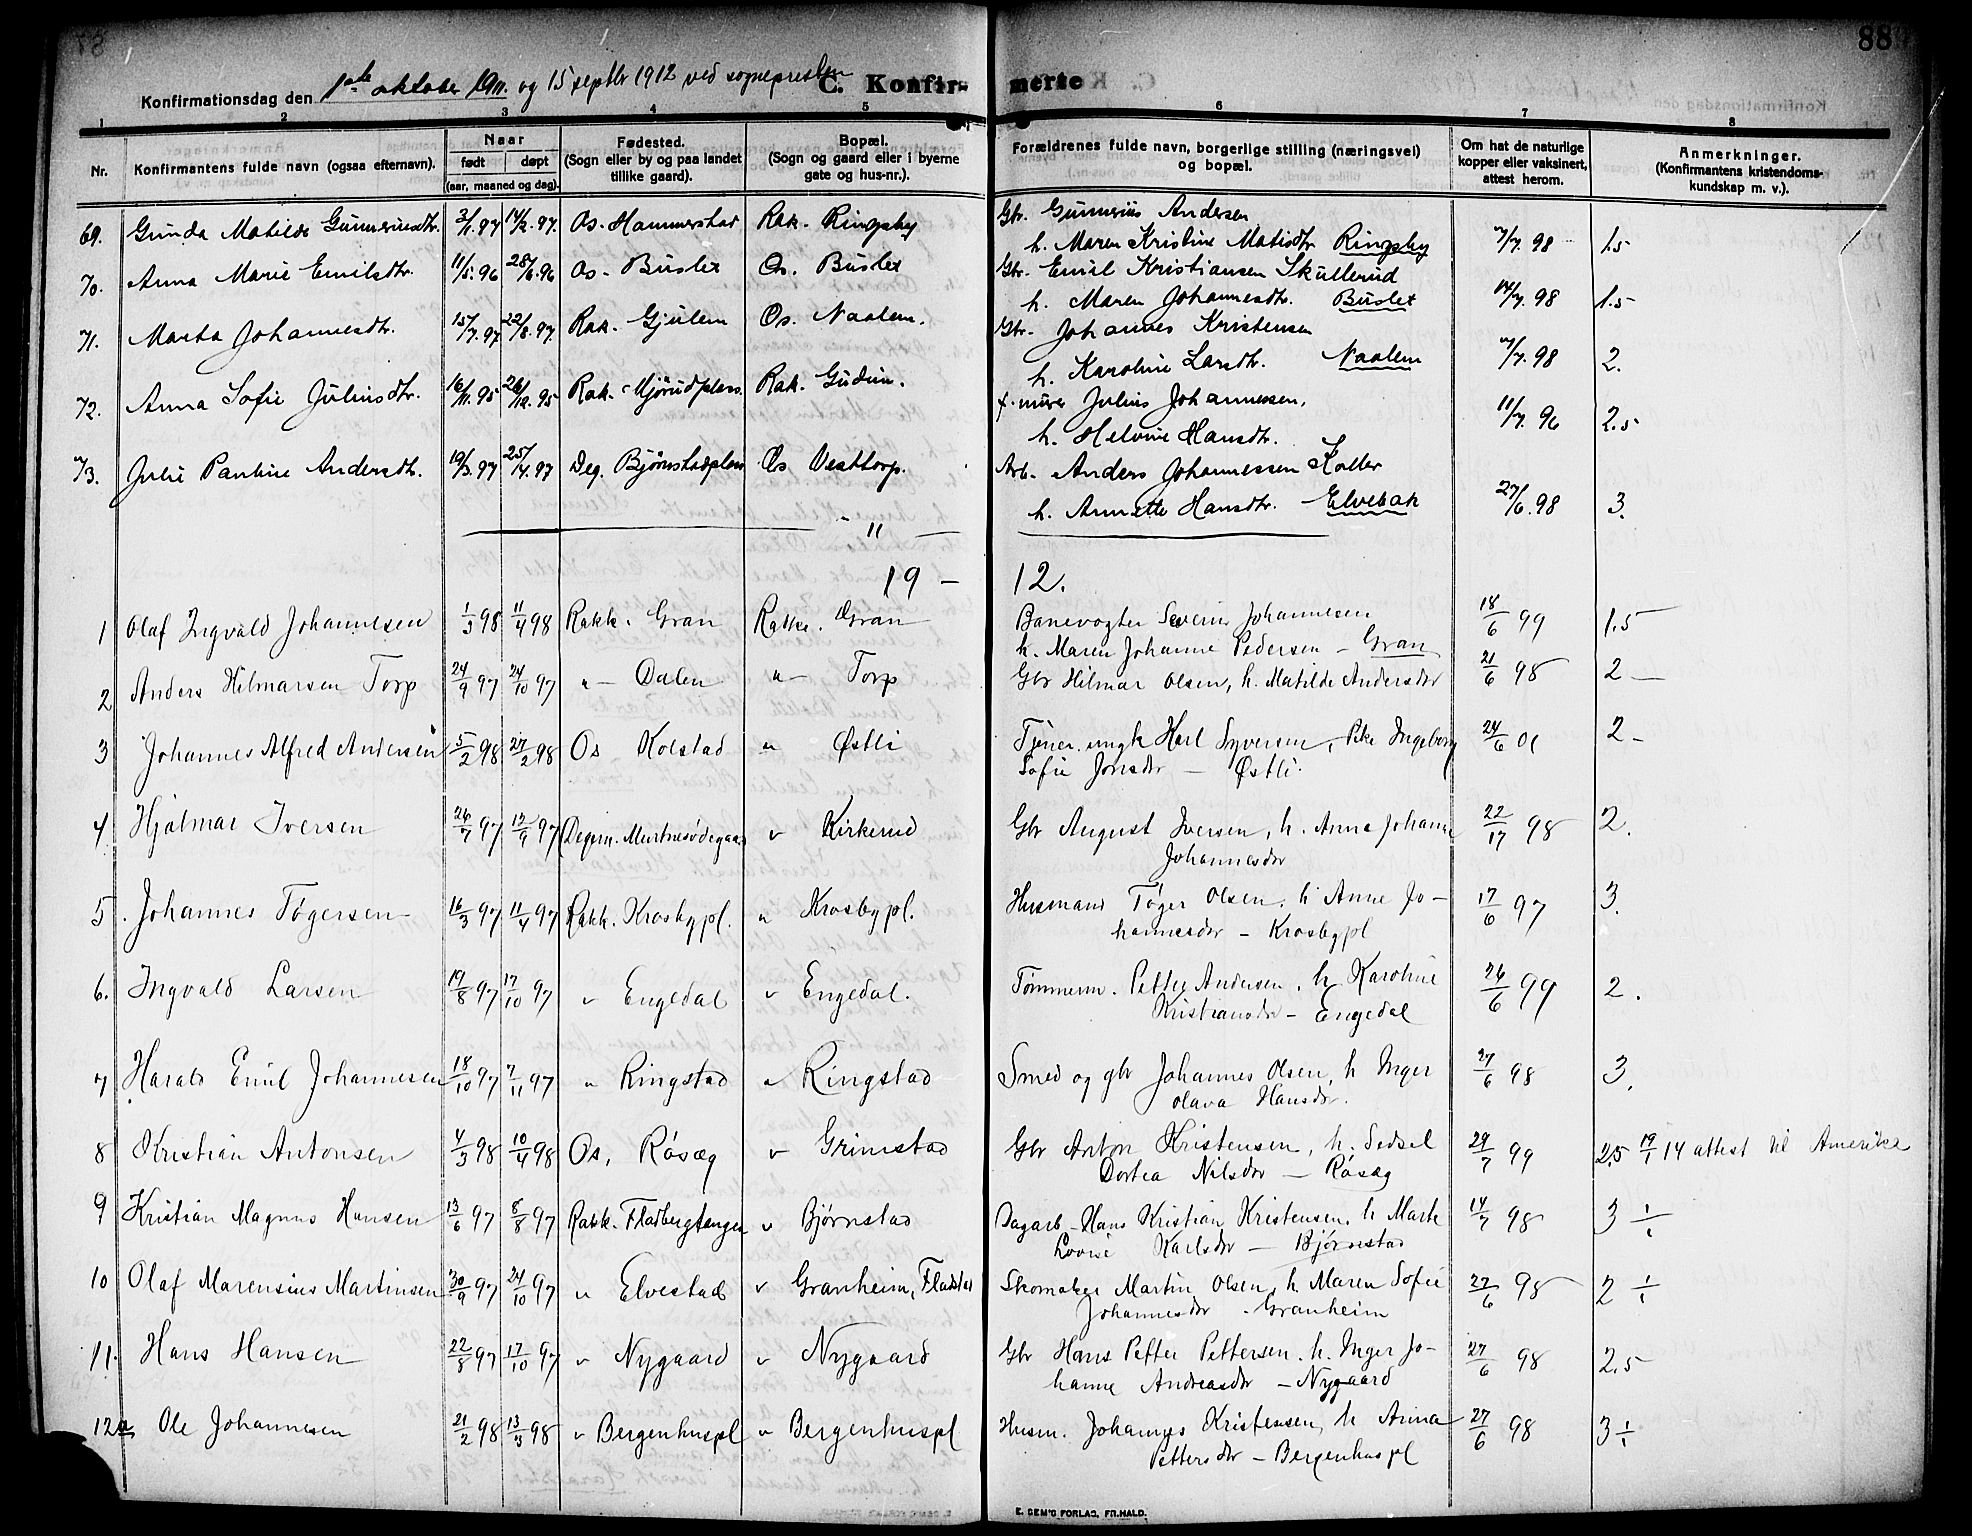 88
Konfirmationsdag den 1ste oktober 1911. og 15 septbr 1912 ved sognepresten
C. Konfir- merte
1 2 3 4 5 6 7 8
Nr. Konfirmantens fulde navn (ogsaa efternavn). Naar født døpt (aar, maaned og dag). Fødested. (Sogn eller by og paa landet tillike gaard). Bopæl. (Sogn og gaard eller i byerne gate og hus-nr.). Forældrenes fulde navn, borgerlige stilling (næringsvei) og bopæl. Om hat de naturlige kopper eller vaksinert, attest herom. Anmerkninger. (Konfirmantens kristendoms- kundskap m. v.).
69. Gunda Matilde Gunneriusdtr. 3/1.97 14/2.97. Os. Hammerstad Rak. Ringsby Gbr. Gunnerius Andersen
h. Maren Kristine Matisdtr Ringsby 7/7.98 1.5
70. Anna Marie Emilsdtr. 11/5.96 28/6.96 Os. Buslet Os. Buslet Gbr. Emil Kristiansen Skullerud
h. Maren Johannesdtr. Buslet 14/7.98 1.5
71. Marta Johannesdtr. 15/7.97 22/8.97. Rak. Gjulem Os. Naalem. Gbr. Johannes Kristensen
h. Karoline Larsdtr. Naalem 7/7.98 2.
72. Anna Sofie Juliusdtr. 16/11.95 26/12.95 Rak. Mjørudplass Rak. Gudim. f. murer Julius Johannessen,
h. Helvine Hansdtr. 11/7.96 2.5
73. Julie Pauline Andersdtr. 19/3.97 25/14.97 Deg. Bjørnstadplass Os Vesttorp. Arb. Anders Johannessen Koller
h. Annette Hansdtr. Elvebak 27/6.98 3.
"
19 - 12.
1 Olaf Ingvald Johannesen 1/3 98 11/4 98 Rakk. Gran Rakke. Gran Banevogter Severin Johannesen
h. Maren Johanne Pedersen - Gran 18/6 99 1.5
2 Anders Hilmarsen Torp 24/9 97 24/10 97 " Dalen " Torp Gbr Hilmar Olsen, h. Matilde Andersdtr 21/6 98 2
3 Johannes Alfred Andersen 5/2 98 27/2 98 Os Kolstad " Østli Tjener. ungk Karl Syversen, Pike Ingeborg
Sofie Jonsdtr - Østli. 24/6 01 2
4 Hjalmar Iversen 26/7 97 12/9 97 Degern. " Kirkerud Gbr August Iversen, h. Anna Johanne
Johannesdtr 22/17 98 2.
5. Johannes Tøgersen 16/3 97 11/4 97 Rakk. Krosbypl. " Krosbypl. Husmand Tøger Olsen, h Anne Jo-
hannesdtr - Krosbypl 17/6 97 3.
6. Ingvald Larsen 19/8 97 17/10 97 " Engedal " Engedal. Tømmerm. Petter Andersen, h. Karoline
Kristiansdtr - Engedal 26/6 99 2.
7 Harald Emil Johannesen 18/10 97 7/11 97 " Ringstad " Ringstad Smed og gbr Johannes Olsen, h Inger
Olava Hansdtr. 27/6 98 3.
8 Kristian Antonsen 4/3 98 10/4 98 Os, Røsæg " Grimstad Gbr Anton Kristensen, h. Sedsel
Dortea Nilsdtr - Røsæg 29/7 99 2.5 19/1 14 attest til Amerika
9 Kristian Magnus Hansen 13/6 97 8/8 97 Rakk. Fladbergtangen " Bjørnstad Dagarb - Hans Kristian Kristensen, h Marte
Lovise Karlsdtr - Bjørnstad 14/7 98 3
10 Olaf Marensius Martinsen 30/9 97 24/10 97 " Elvestad " Granheim, Fladstad Skomaker Martin Olsen, h. Maren Sofie
Johannesdtr - Granheim 22/6 98 2
11. Hans Hansen 22/8 97 17/10 97 " Nygaard " Nygaard Gbr Hans Petter Pettersen. h. Inger Jo-
hanne Andreasdtr - Nygaard 27/6 98 2.5
12 Ole Johannesen 21/2 98 13/3 98 " Bergenhuspl " Bergenhuspl Husm. Johannes Kristensen, h Anna
Pettersdtr - Bergenhuspl 27/6 98 3
E. SEM'S FORLAG, FR.HALD.